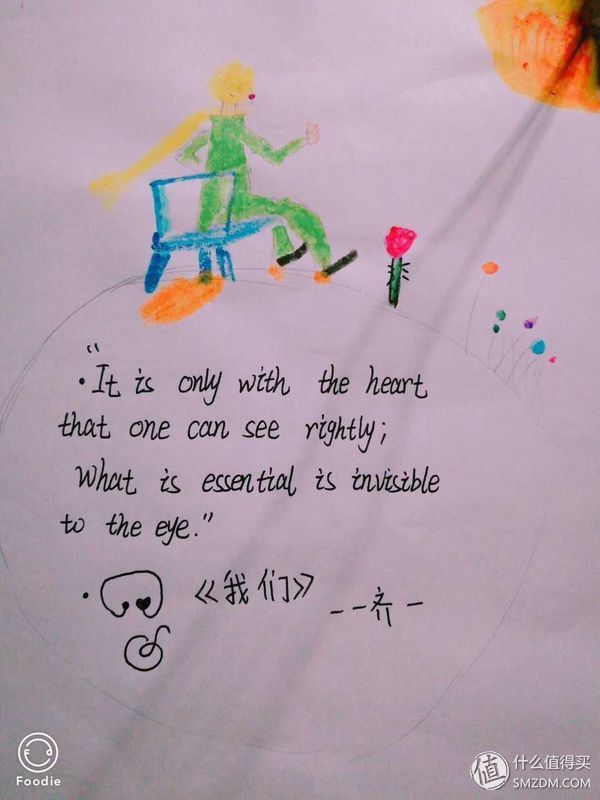 “
·It is only with the heart
that one can see rightly;
What is essential is invisible
to the eye.”
· 《我们》 --齐-
Foodie
值 什么值得买
SMZDM.COM